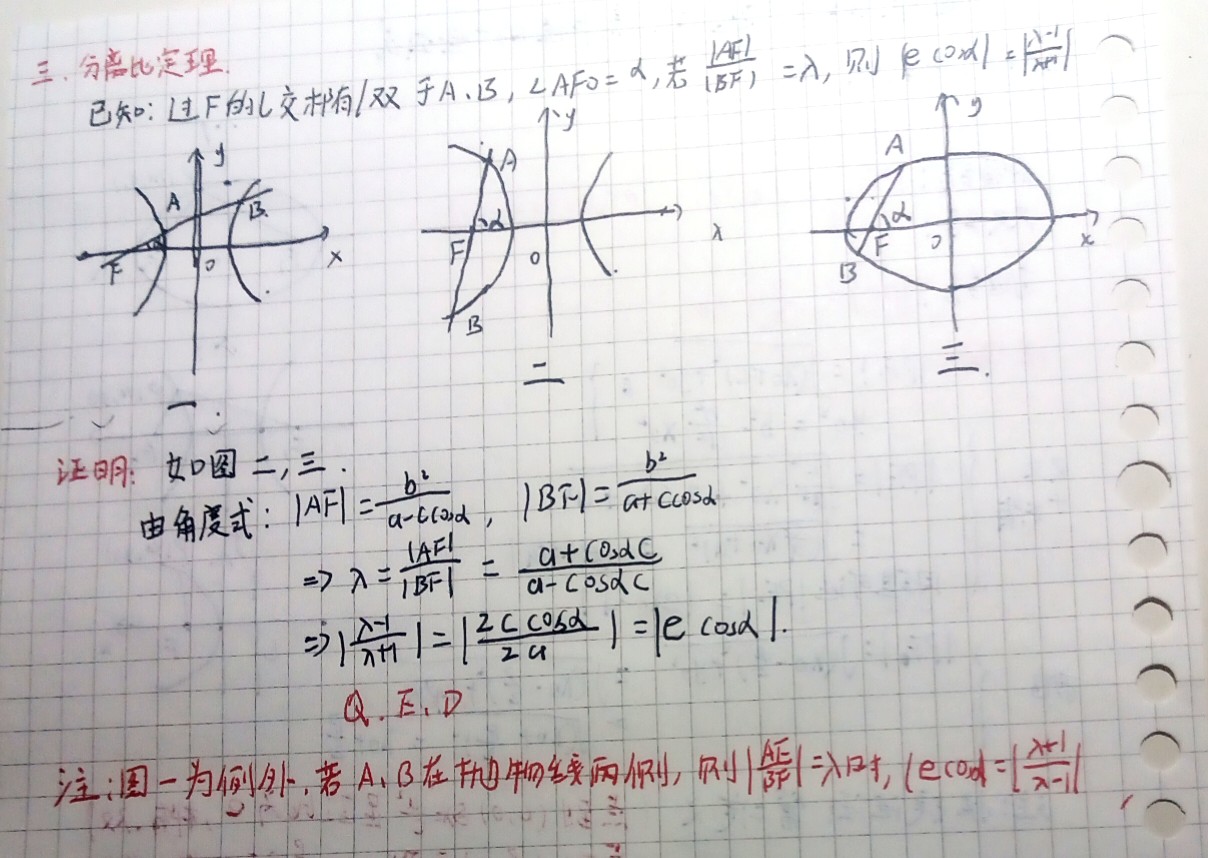 三、分离比定理.
已知: 过F的l交椭圆/双于A、B, ∠AFO=α, 若 |AF|/|BF| =λ, 则 |e cosα| = |λ-1/λ+1|
y
A
B
F
O
x
一.
y
A
α
F
O
B
x
二
y
A
α
F
O
B
x
三.
证明: 如图二, 三.
由角度式: |AF| = b²/a-ccosα , |BF| = b²/a+ccosα
⇒ λ = |AF|/|BF| = a+cosαC/a-cosαC
⇒ |λ-1/λ+1| = |2c cosα/2a| = |e cosα|.
Q.E.D
注: 图一为例外. 若A、B在两侧, 则 |AF/BF| =λ时, |e cosα| = |λ+1/λ-1|